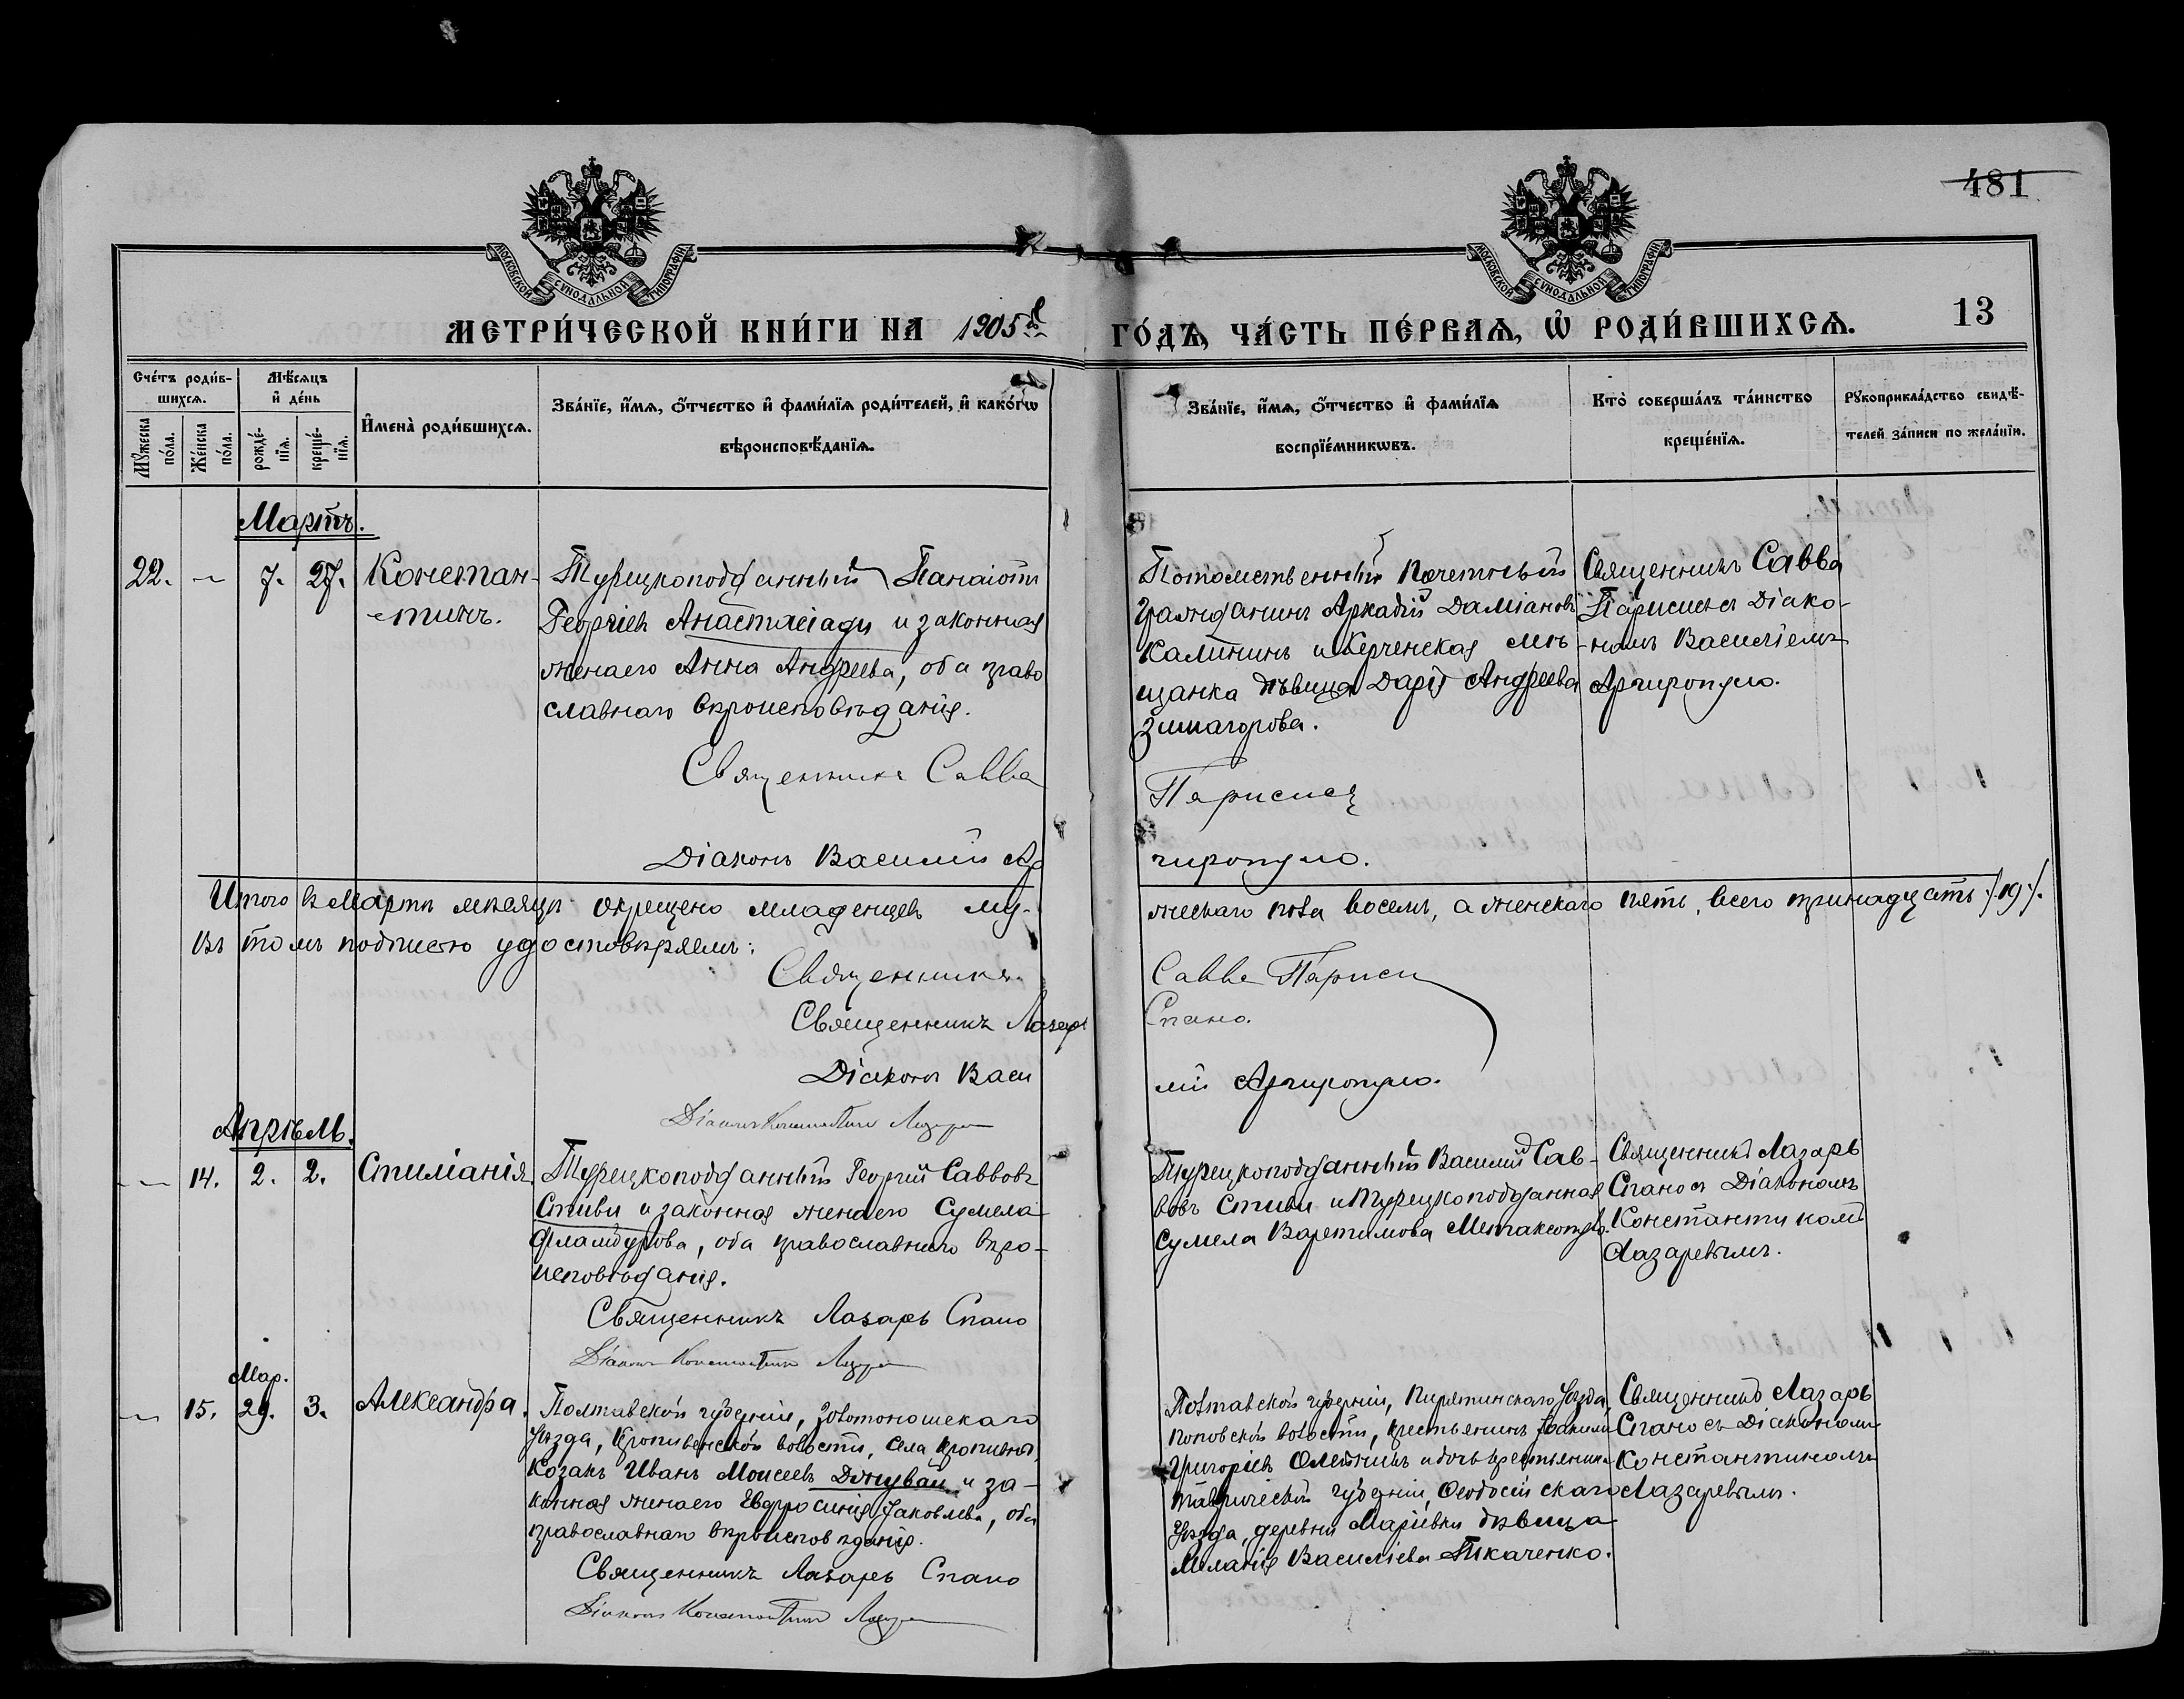 481
МОСКОВСКОЙ СѴНОДАЛЬНОЙ ТИПОГРАФІИ
МОСКОВСКОЙ СѴНОДАЛЬНОЙ ТИПОГРАФІИ
МЕТРИ́ЧЕСКОЙ КНИ́ГИ НА 1905й
ГО́ДЪ, ЧА́СТЬ ПЕ́РВАѦ, Ѡ҆ РОДИ́ВШИХСѦ.
13
Сче́тъ роди́в-
шихсѧ.
Мꙋ́жеска по́ла.
Же́нска по́ла.
Мѣ́сѧцъ
и҆ де́нь
рожде́-
нїѧ.
креще́-
нїѧ.
И҆мена̀ роди́вшихсѧ.
Зва́нїе, и҆́мѧ, ѻ҆́тчество и҆ фами́лїѧ роди́телей, и҆ како́гѡ
вѣроисповѣ́данїѧ.
Зва́нїе, и҆́мѧ, ѻ҆́тчество и҆ фами́лїѧ
воспрїе́мникѡвъ.
Кто̀ соверша́лъ та́инство
креще́нїѧ.
Рꙋкоприкла́дство свидѣ́-
телей за́писи по жела́нїю.
Мартъ.
22. — 7. 27.
Констан-
тинъ.
Турецкоподданный Панаіотъ
Георгіевъ Анастасіади и законная
жена его Анна Андреева, оба право
славнаго вѣроисповѣданія.
Священникъ Савва
Діаконъ Василій Ар
Потомственный почетный
гражданинъ Аркадій Даміановъ
Калининъ и Керченская мѣ-
щанка дѣвица Дарія Андреева
Зимагорова.
Париси
гиропуло.
Священникъ Савва
Парисисъ Діако-
номъ Василіемъ
Аргиропуло.
Итого въ Мартѣ мѣсяцѣ окрещено младенцевъ му-
жескаго пола восемь, а женскаго пять, всего тринадцать /19/.
въ томъ подписью удостовѣряемъ:
Священникъ
Савва Париси
Священникъ Лазарь
Спано.
Діаконъ Васи
лій Аргиропуло.
Діаконъ Константинъ Лазаревъ
Апрѣль.
— 14. 2. 2.
Стиліанія.
Турецкоподданный Георгій Саввовъ
Стиви и законная жена его Сумела
, оба православнаго вѣро-
исповѣданія.
Священникъ Лазарь Спано
Діаконъ Константинъ Лазаревъ
Турецкоподданный Василій Сав-
вовъ Стиви и Турецкоподданная
Сумела Варетимова
Священникъ Лазарь
Спаносъ Діакономъ
Константиномъ
Лазаревымъ.
Мар.
— 15. 29. 3.
Александра.
Полтавской губерніи, Золотоношскаго
уѣзда, Кропивенской волости, села Кропивны,
Козакъ Иванъ Моисеевъ Джувай и за-
конная жена его Евфросинія Іаковлева, оба
православнаго вѣроисповѣданія.
Священникъ Лазарь Спано
Діаконъ Константинъ Лазаревъ
Полтавской губерніи, Пирятинскаго уѣзда,
Поповской волости, крестьянинъ Іоакимъ
Григоріевъ и дочь крестьянина
Таврической губерніи, Ѳеодосійскаго
уѣзда, деревни Маріевки дѣвица
Меланія Василіева Ткаченко.
Священникъ Лазарь
Спаносъ Діакономъ
Константиномъ
Лазаревымъ.